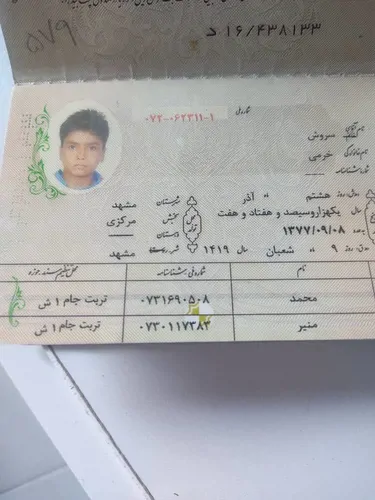 ۵۷۹
د ۱۶/۴۳۸۱۳۳
شماره ملی
۰۷۲-۰۶۲۳۱۱-۱
نام سروش
نام خانوادگی خرمی
شماره شناسنامه
هشتم آذر شهرستان مشهد
سال یکهزاروسیصد و هفتاد و هفت بخش مرکزی
۱۳۷۷/۰۹/۰۸ دهستان ــــ
۹ شعبان سال ۱۴۱۹ شهر مشهد
نام شماره ملی / شناسنامه محل تنظیم سند / حوزه
محمد ۰۷۳۱۶۹۰۵۰۸ تربت جام ۱ ش
منیر ۰۷۳۰۱۱۷۳۸۳ تربت جام ۱ ش